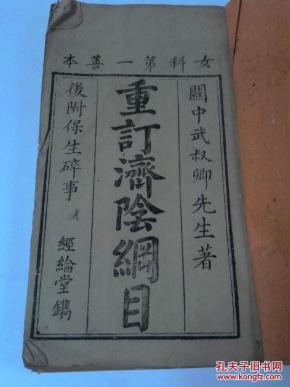 女科第一善本
關中武叔卿先生著
重訂濟陰綱目
後附保生碎事
經綸堂鐫
孔夫子旧书网